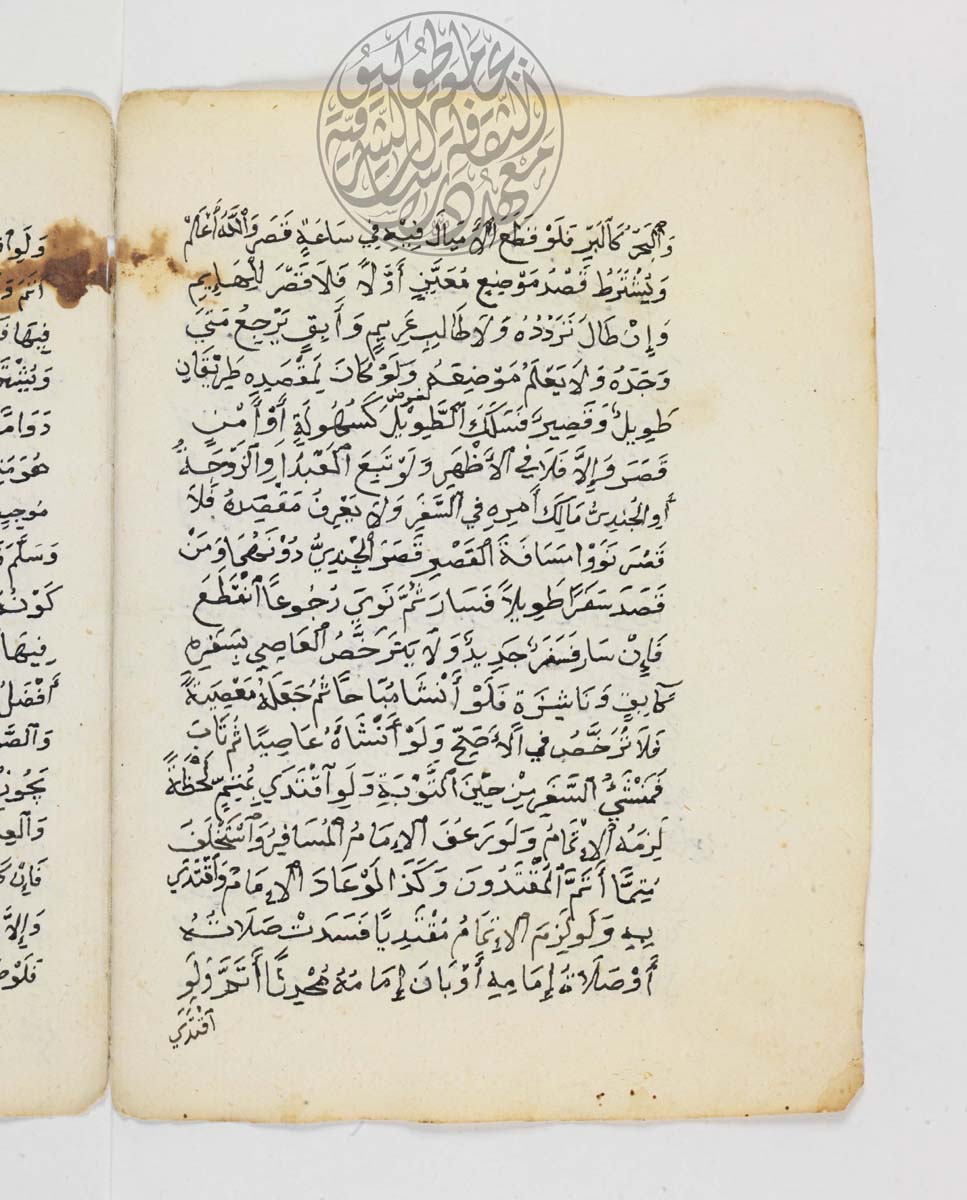 معهد الثقافة والدراسات الشرقية جامعة طوكيو
وَالْبَحْرُ كَالْبَرِّ فَلَوْ قَطَعَ الْأَمْيَالَ فِيهِ فِي سَاعَةٍ قَصَرَ وَاللّٰهُ أَعْلَمُ
وَيُشْتَرَطُ قَصْدُ مَوْضِعٍ مُعَيَّنٍ أَوَّلًا فَلَا قَصْرَ لِلْهَايِمِ
وَإِنْ طَالَ تَرَدُّدُهُ وَلَا طَالِبِ غَرِيمٍ وَأَبِقٍ يَرْجِعُ مَتَى
وَجَدَهُ وَلَا يَعْلَمُ مَوْضِعَهُ وَلَوْ كَانَ لِمَقْصِدِهِ طَرِيقَانِ
طَوِيلٌ وَقَصِيرٌ فَسَلَكَ الطَّوِيلَ لغرض كَسُهُولَةٍ أَوْ أَمْنٍ
قَصَرَ وَإِلَّا فَلَا فِي الْأَظْهَرِ وَلَوْ تَبِعَ الْعَبْدُ أَوِ الزَّوْجَةُ
أَوِ الْجُنْدِيُّ مَالِكَ أَمْرِهِ فِي السَّفَرِ وَلَا يَعْرِفُ مَقْصِدَهُ فَلَا
قَصْرَ نَوَوْا مَسَافَةَ الْقَصْرِ قَصَرَ الْجُنْدِيُّ دُونَهُمَا وَمَنْ
قَصَدَ سَفَرًا طَوِيلًا فَسَارَ ثُمَّ نَوَى رُجُوعًا انْقَطَعَ
فَإِنْ سَارَ فَسَفَرٌ جَدِيدٌ وَلَا يَتَرَخَّصُ الْعَاصِي بِسَفَرِهِ
كَآبِقٍ وَنَاشِزَةٍ فَلَوْ أَنْشَا مُبَاحًا ثُمَّ جَعَلَهُ مَعْصِيَةً
فَلَا تَرَخُّصُ فِي الْأَصَحِّ وَلَوْ أَنْشَاَهُ عَاصِيًا ثُمَّ تَابَ
فَمَنْشَئُ السَّفَرِ مِنْ حِينَ التَّوْبَةِ وَلَوِ اقْتَدَى بِمُتِمٍّ لَحْظَةً
لَزِمَهُ الْإِتْمَامُ وَلَوْ رَعُفَ الْإِمَامُ الْمُسَافِرُ وَاسْتَخْلَفَ
مُتِمًّا أَتَمَّ الْمُقْتَدُونَ وَكَذَا لَوْ عَادَ الْإِمَامُ وَاقْتَدَى
بِهِ وَلَوْ لَزِمَ الْإِتْمَامُ مُقْتَدِيًا فَسَدَتْ صَلَاتُهُ
أَوْ صَلَاةُ إِمَامِهِ أَوْ بَانَ إِمَامُهُ مُحْدِثًا أَتَمَّ وَلَوِ
اقْتَدَى
وَلَوِ
فِيهَا
هُوَ
وَسَلَّمَ
فِيهَا
أَفْضَلُ
فَإِنْ
وَإِلَّا